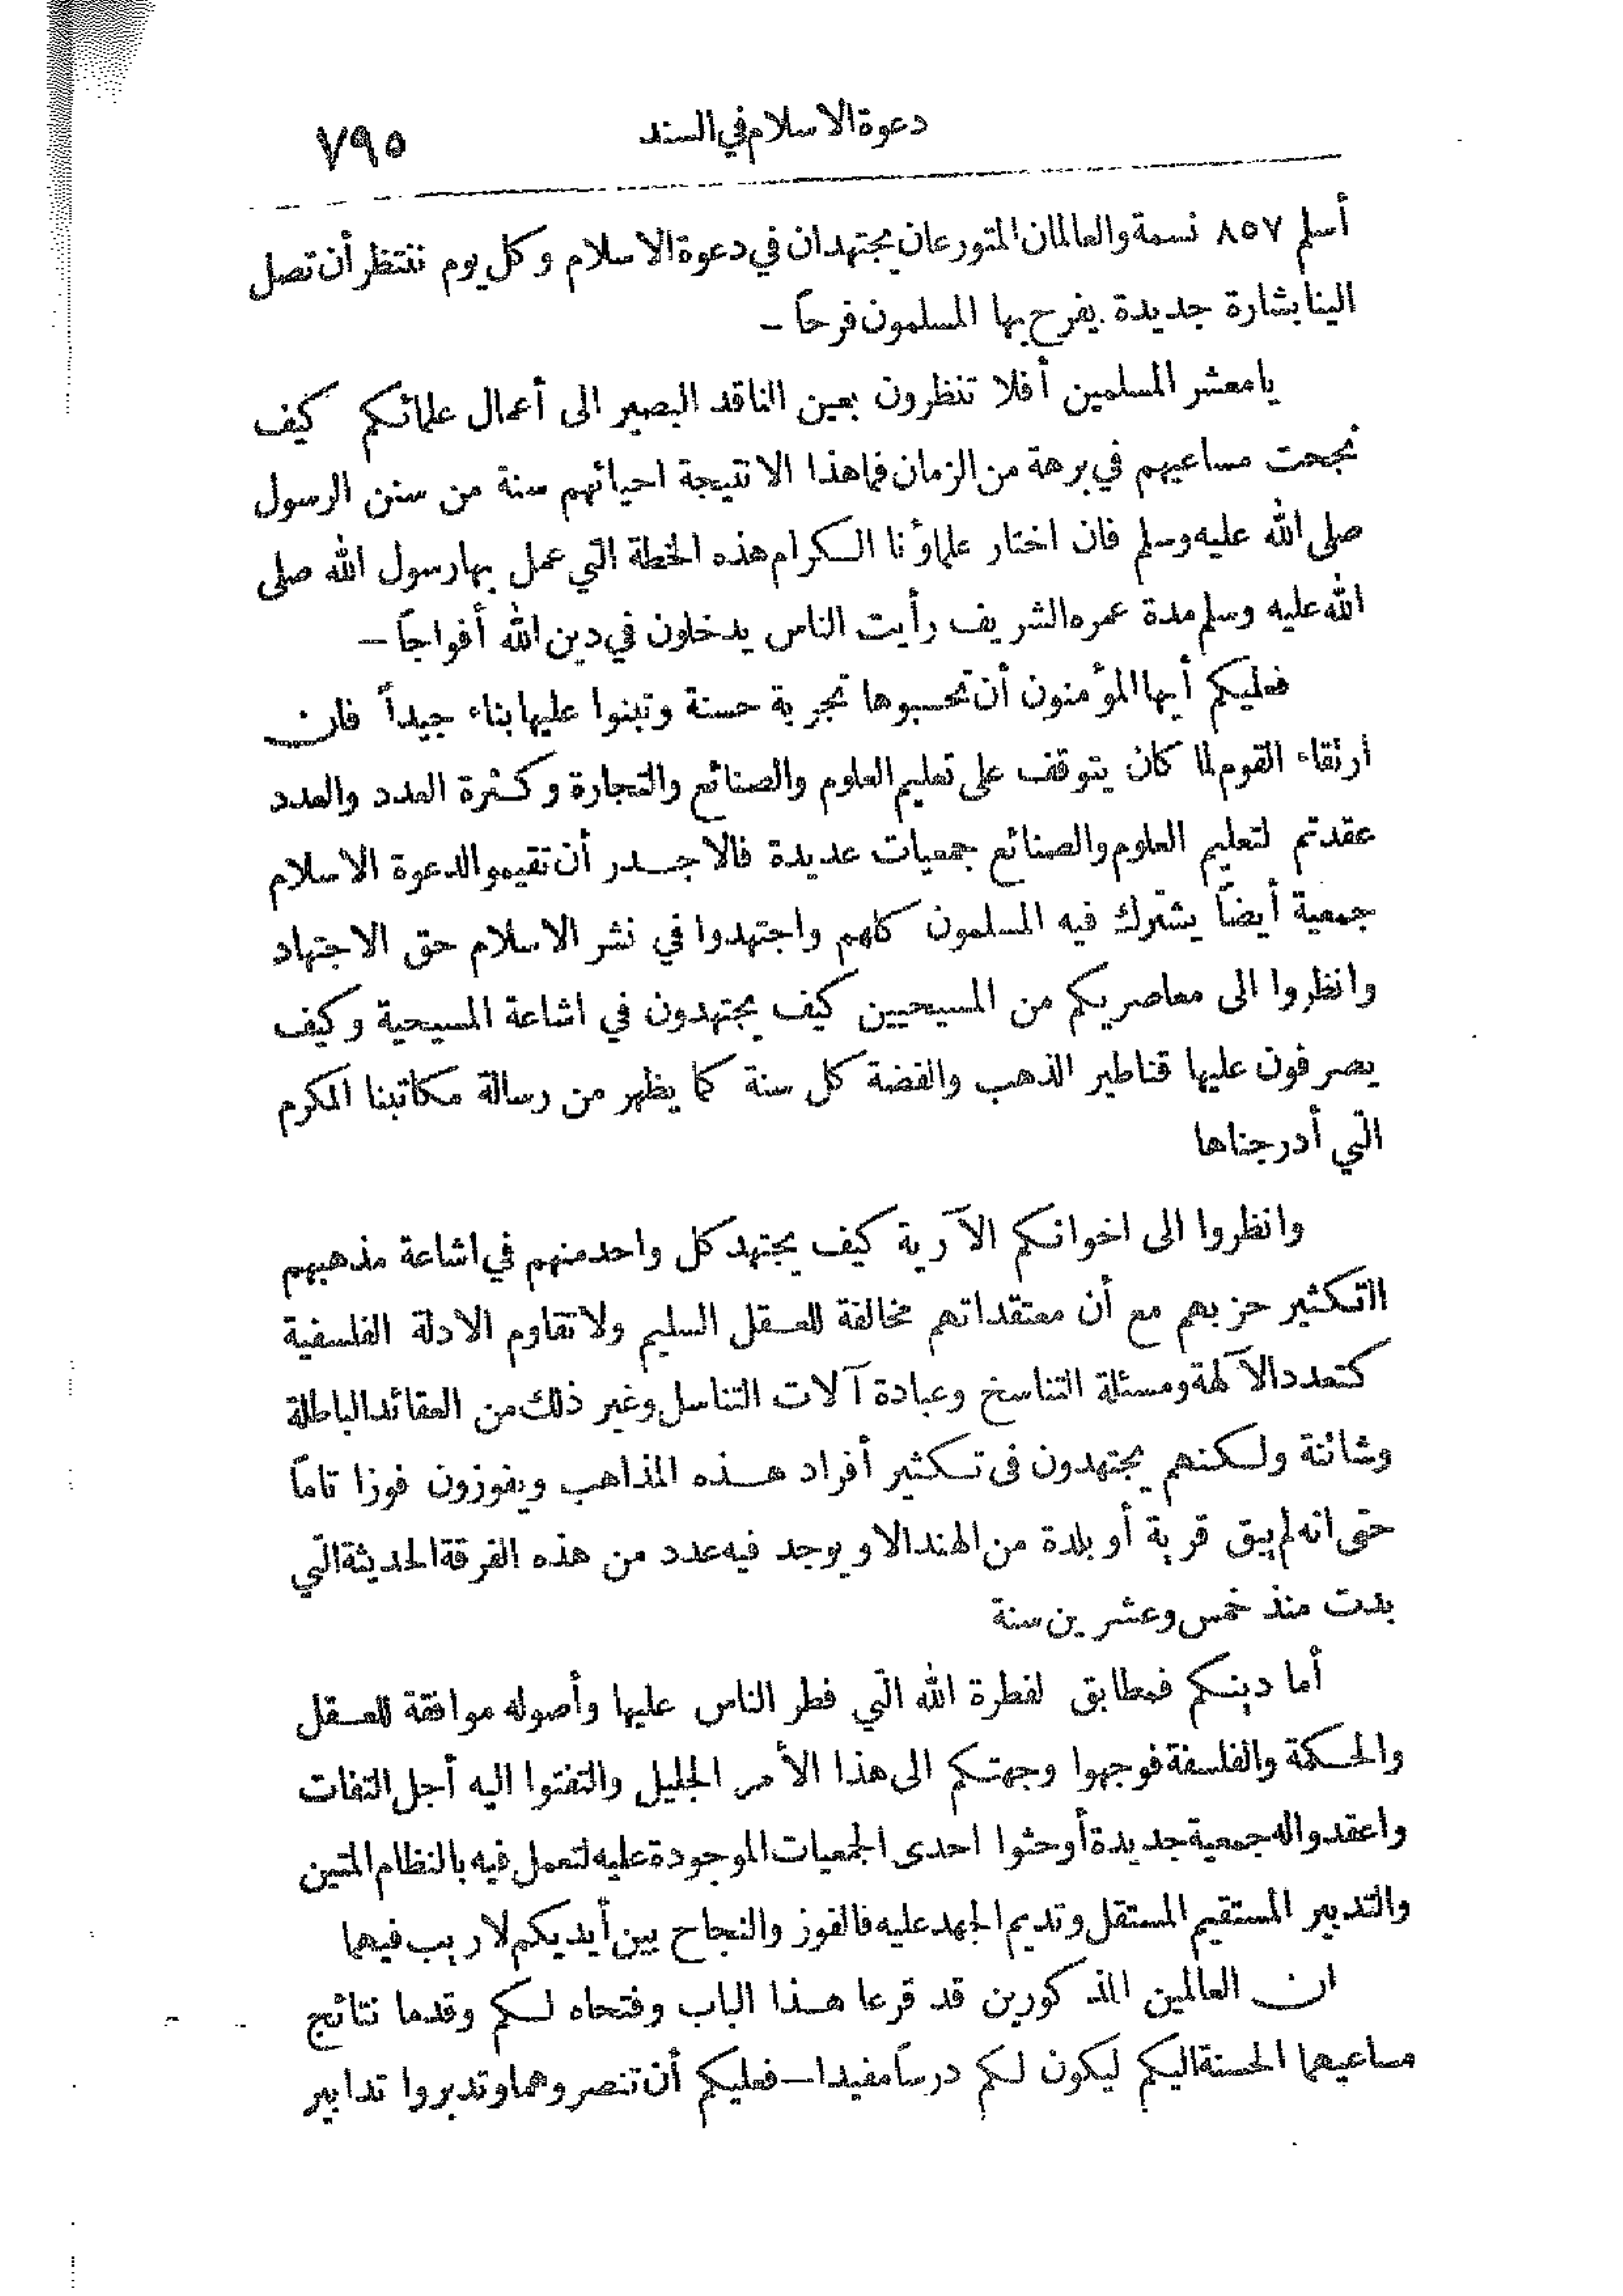 دعوة الاسلام في السند
٧٩٥
أسلم ٨٥٧ نسمة والعالمان المتورعان مجتهدان في دعوة الاسلام وكل يوم ننتظر أن تصل
الينا بشارة جديدة يفرح بها المسلمون فرحاً –
يا معشر المسلمين أفلا تنظرون بعين الناقد البصير الى أعمال علمائكم كيف
نجحت مساعيهم في برهة من الزمان فما هذا الا نتيجة احيائهم سنة من سنن الرسول
صلى الله عليه وسلم فان اختار علماؤنا الكرام هذه الخطة التي عمل بها رسول الله صلى
الله عليه وسلم مدة عمره الشريف رأيت الناس يدخلون في دين الله أفواجاً –
فعليكم أيها المؤمنون أن تحسبوها تجربة حسنة وتبنوا عليها بناء جيداً فان
ارتقاء القوم لما كان يتوقف على تعليم العلوم والصنائع والتجارة وكثرة العدد والعدد
عقدتم لتعليم العلوم والصنائع جمعيات عديدة فالاجدر أن تقيموا لدعوة الاسلام
جمعية أيضاً يشترك فيه المسلمون كلهم واجتهدوا في نشر الاسلام حق الاجتهاد
وانظروا الى معاصريكم من المسيحيين كيف يجتهدون في اشاعة المسيحية وكيف
يصرفون عليها قناطير الذهب والفضة كل سنة كما يظهر من رسالة مكاتبنا المكرم
التي أدرجناها
وانظروا الى اخوانكم الآرية كيف يجتهد كل واحد منهم في اشاعة مذهبهم
التكثير حزبهم مع أن معتقداتهم مخالفة للعقل السليم ولا تقاوم الادلة الفلسفية
كتعدد الآلهة ومسئلة التناسخ وعبادة آلات التناسل وغير ذلك من العقائد الباطلة
وشائنة ولكنهم يجتهدون فى تكثير أفراد هذه المذاهب ويفوزون فوزا تاماً
حتى انه لم يبق قرية أو بلدة من الهند الا ويوجد فيه عدد من هذه الفرقة الحديثة التي
بدت منذ خمس وعشرين سنة
أما دينكم فمطابق لفطرة الله التي فطر الناس عليها وأصوله موافقة للعقل
والحكمة والفلسفة فوجهوا وجهتكم الى هذا الأمر الجليل والتفتوا اليه أجل التفات
واعقدوا له جمعية جديدة أو حثوا احدى الجمعيات الموجودة عليه لتعمل فيه بالنظام المتين
والتدبير المستقيم المستقل وتديم الجهد عليه فالفوز والنجاح بين أيديكم لا ريب فيهما
ان العالمين المذكورين قد قرعا هذا الباب وفتحاه لكم وقدما نتائج
مساعيهما الحسنة اليكم ليكون لكم درساً مفيدا – فعليكم أن تنصروهما وتدبروا تدابير